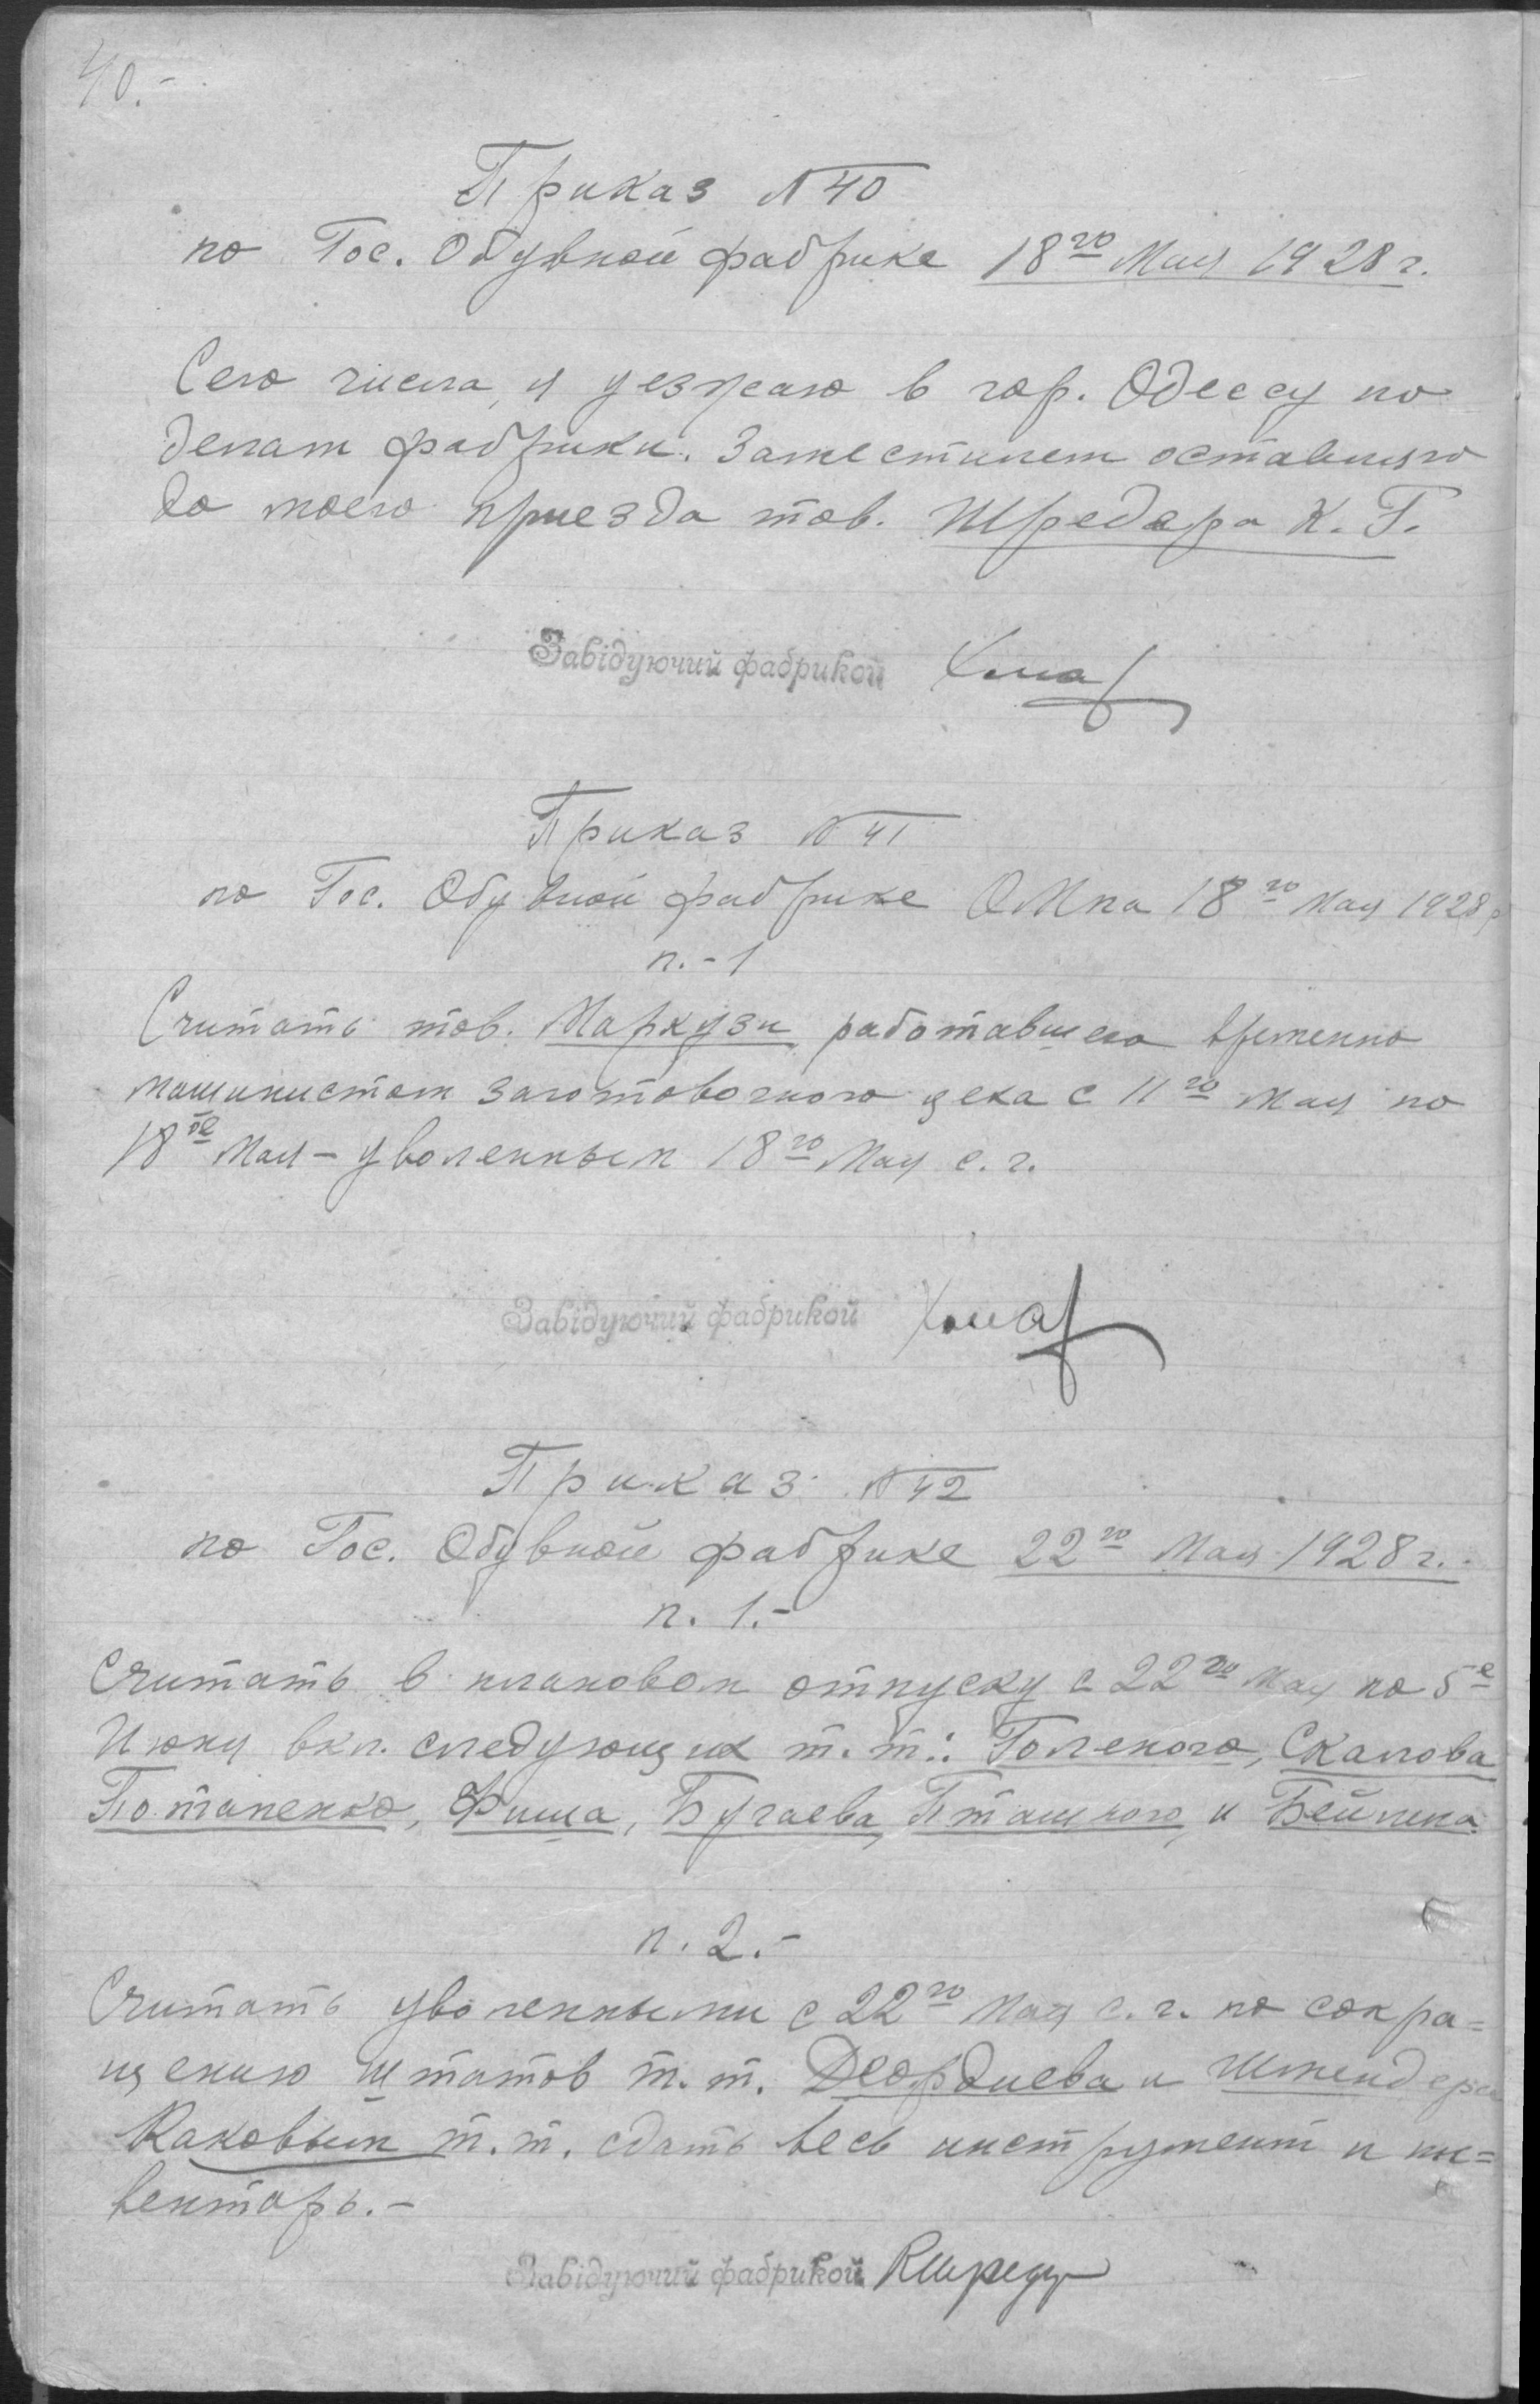 40.-
Приказ №40
по Гос. Обувной фабрике 18го Мая 1928 г.
Сего числа, я уезжаю в гор. Одессу по
делам фабрики. Заместителем оставляю
до моего приезда тов. Шредера К. Г.
Завідуючий фабрикой
Приказ №41
по Гос. Обувной фабрике ОМпа 18го Мая 1928 г
п.-1
Считать тов. Маркузи работавшего временно
машинистом заготовочного цеха с 11го мая по
18ое Мая - уволенным 18го Мая с. г.
Завідуючий фабрикой
Приказ №42
по Гос. Обувной фабрике 22го Мая 1928 г.
п. 1.-
Считать в плановом отпуску с 22го Мая по 5е
Июня вкл. следующих т.т.: Голеного, Скалова
Потапенко, Фиша, Бугаева, Пташного, и Бейлина
п. 2.-
Считать уволенными с 22го Мая с. г. по сокра=
щению штатов т.т. Деордиева и Штендера
Каковым т.т. сдать весь инструмент и ин=
вентарь.-
Завідуючий фабрикой КШредер